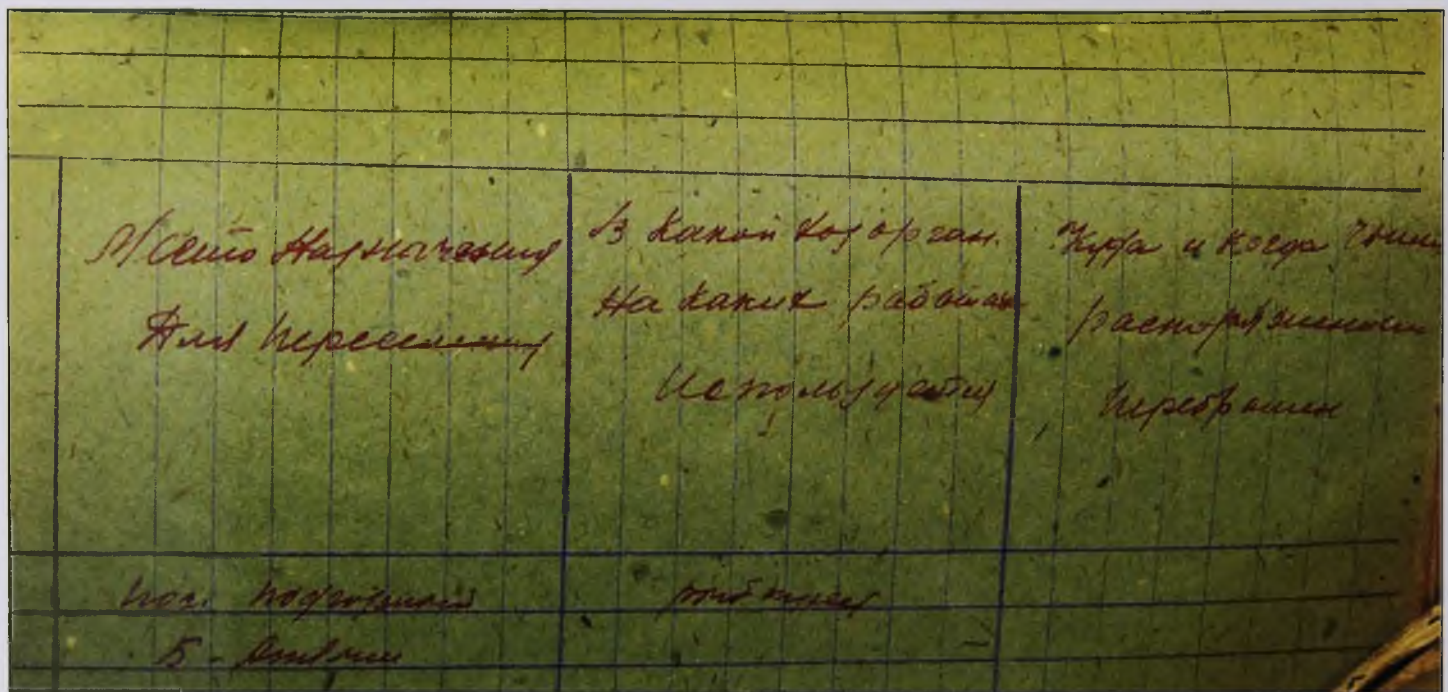 Место назначения
для переселения
В какой хоз орган.
на каких работах
используется
Куда и когда
распоряжением
переброшен
пос. Подгорный